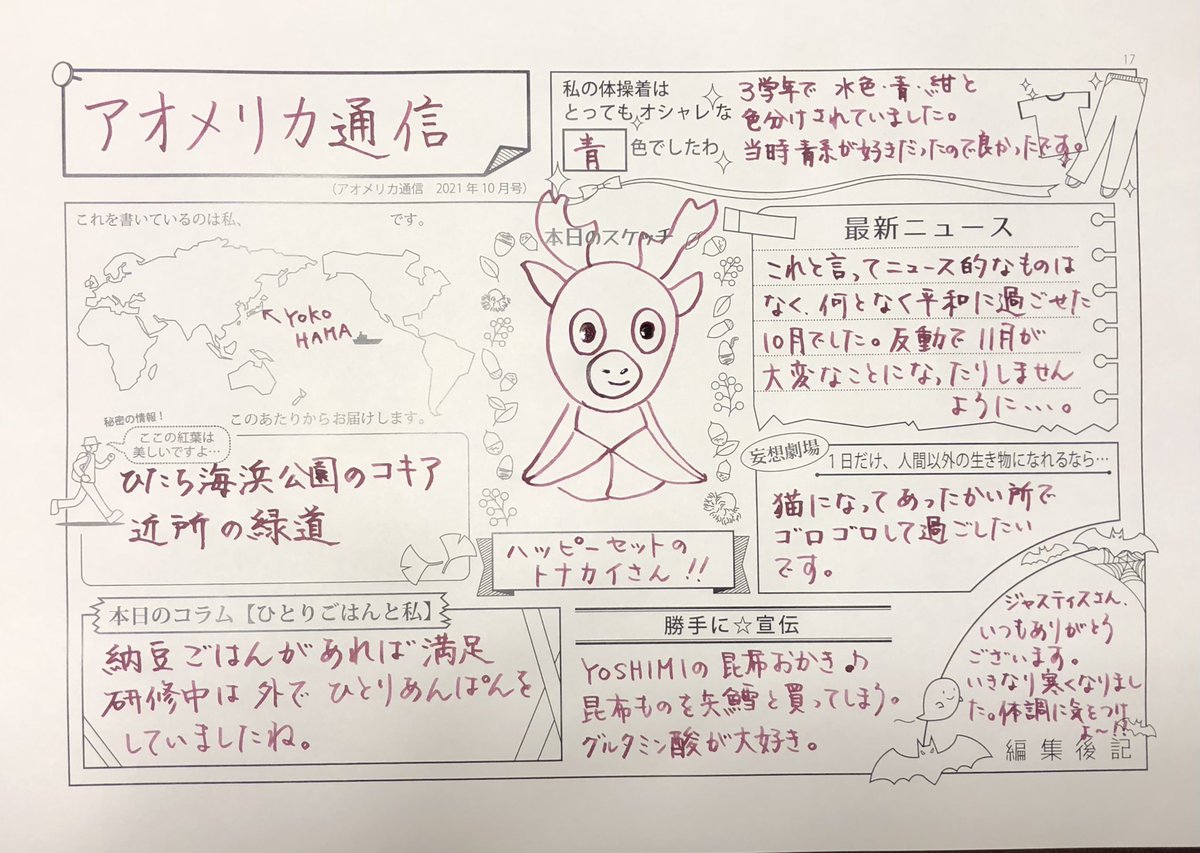 17
アオメリカ通信
(アオメリカ通信　2021年10月号)
私の体操着は
とっても オシャレ な
青 色でしたわ
3学年で 水色・青・紺と
色分けされていました。
当時 青系が好きだったので良かったです。
これを書いているのは私、　です。
YOKO
HAMA
このあたりからお届けします。
秘密の情報！
ここの紅葉は
美しいですよ…
ひたち海浜公園のコキア
近所の緑道
本日のスケッチ
ハッピーセットの
トナカイさん!!
最新ニュース
これと言ってニュース的なものは
なく、何となく平和に過ごせた
10月でした。反動で 11月が
大変なことになったりしません
ように・・・。
妄想劇場
1日だけ、人間以外の生き物になれるなら…
猫になってあったかい所で
ゴロゴロして過ごしたい
です。
本日のコラム【ひとりごはんと私】
納豆ごはんがあれば満足
研修中は 外で ひとりあんぱんを
していましたね。
勝手に☆宣伝
YOSHIMIの昆布おかき♪
昆布ものを 買ってしまう。
グルタミン酸が大好き。
ジャスティスさん、
いつもありがとう
ございます。
いきなり寒くなりまし
た。体調に気をつけ
よ〜!!
編集後記